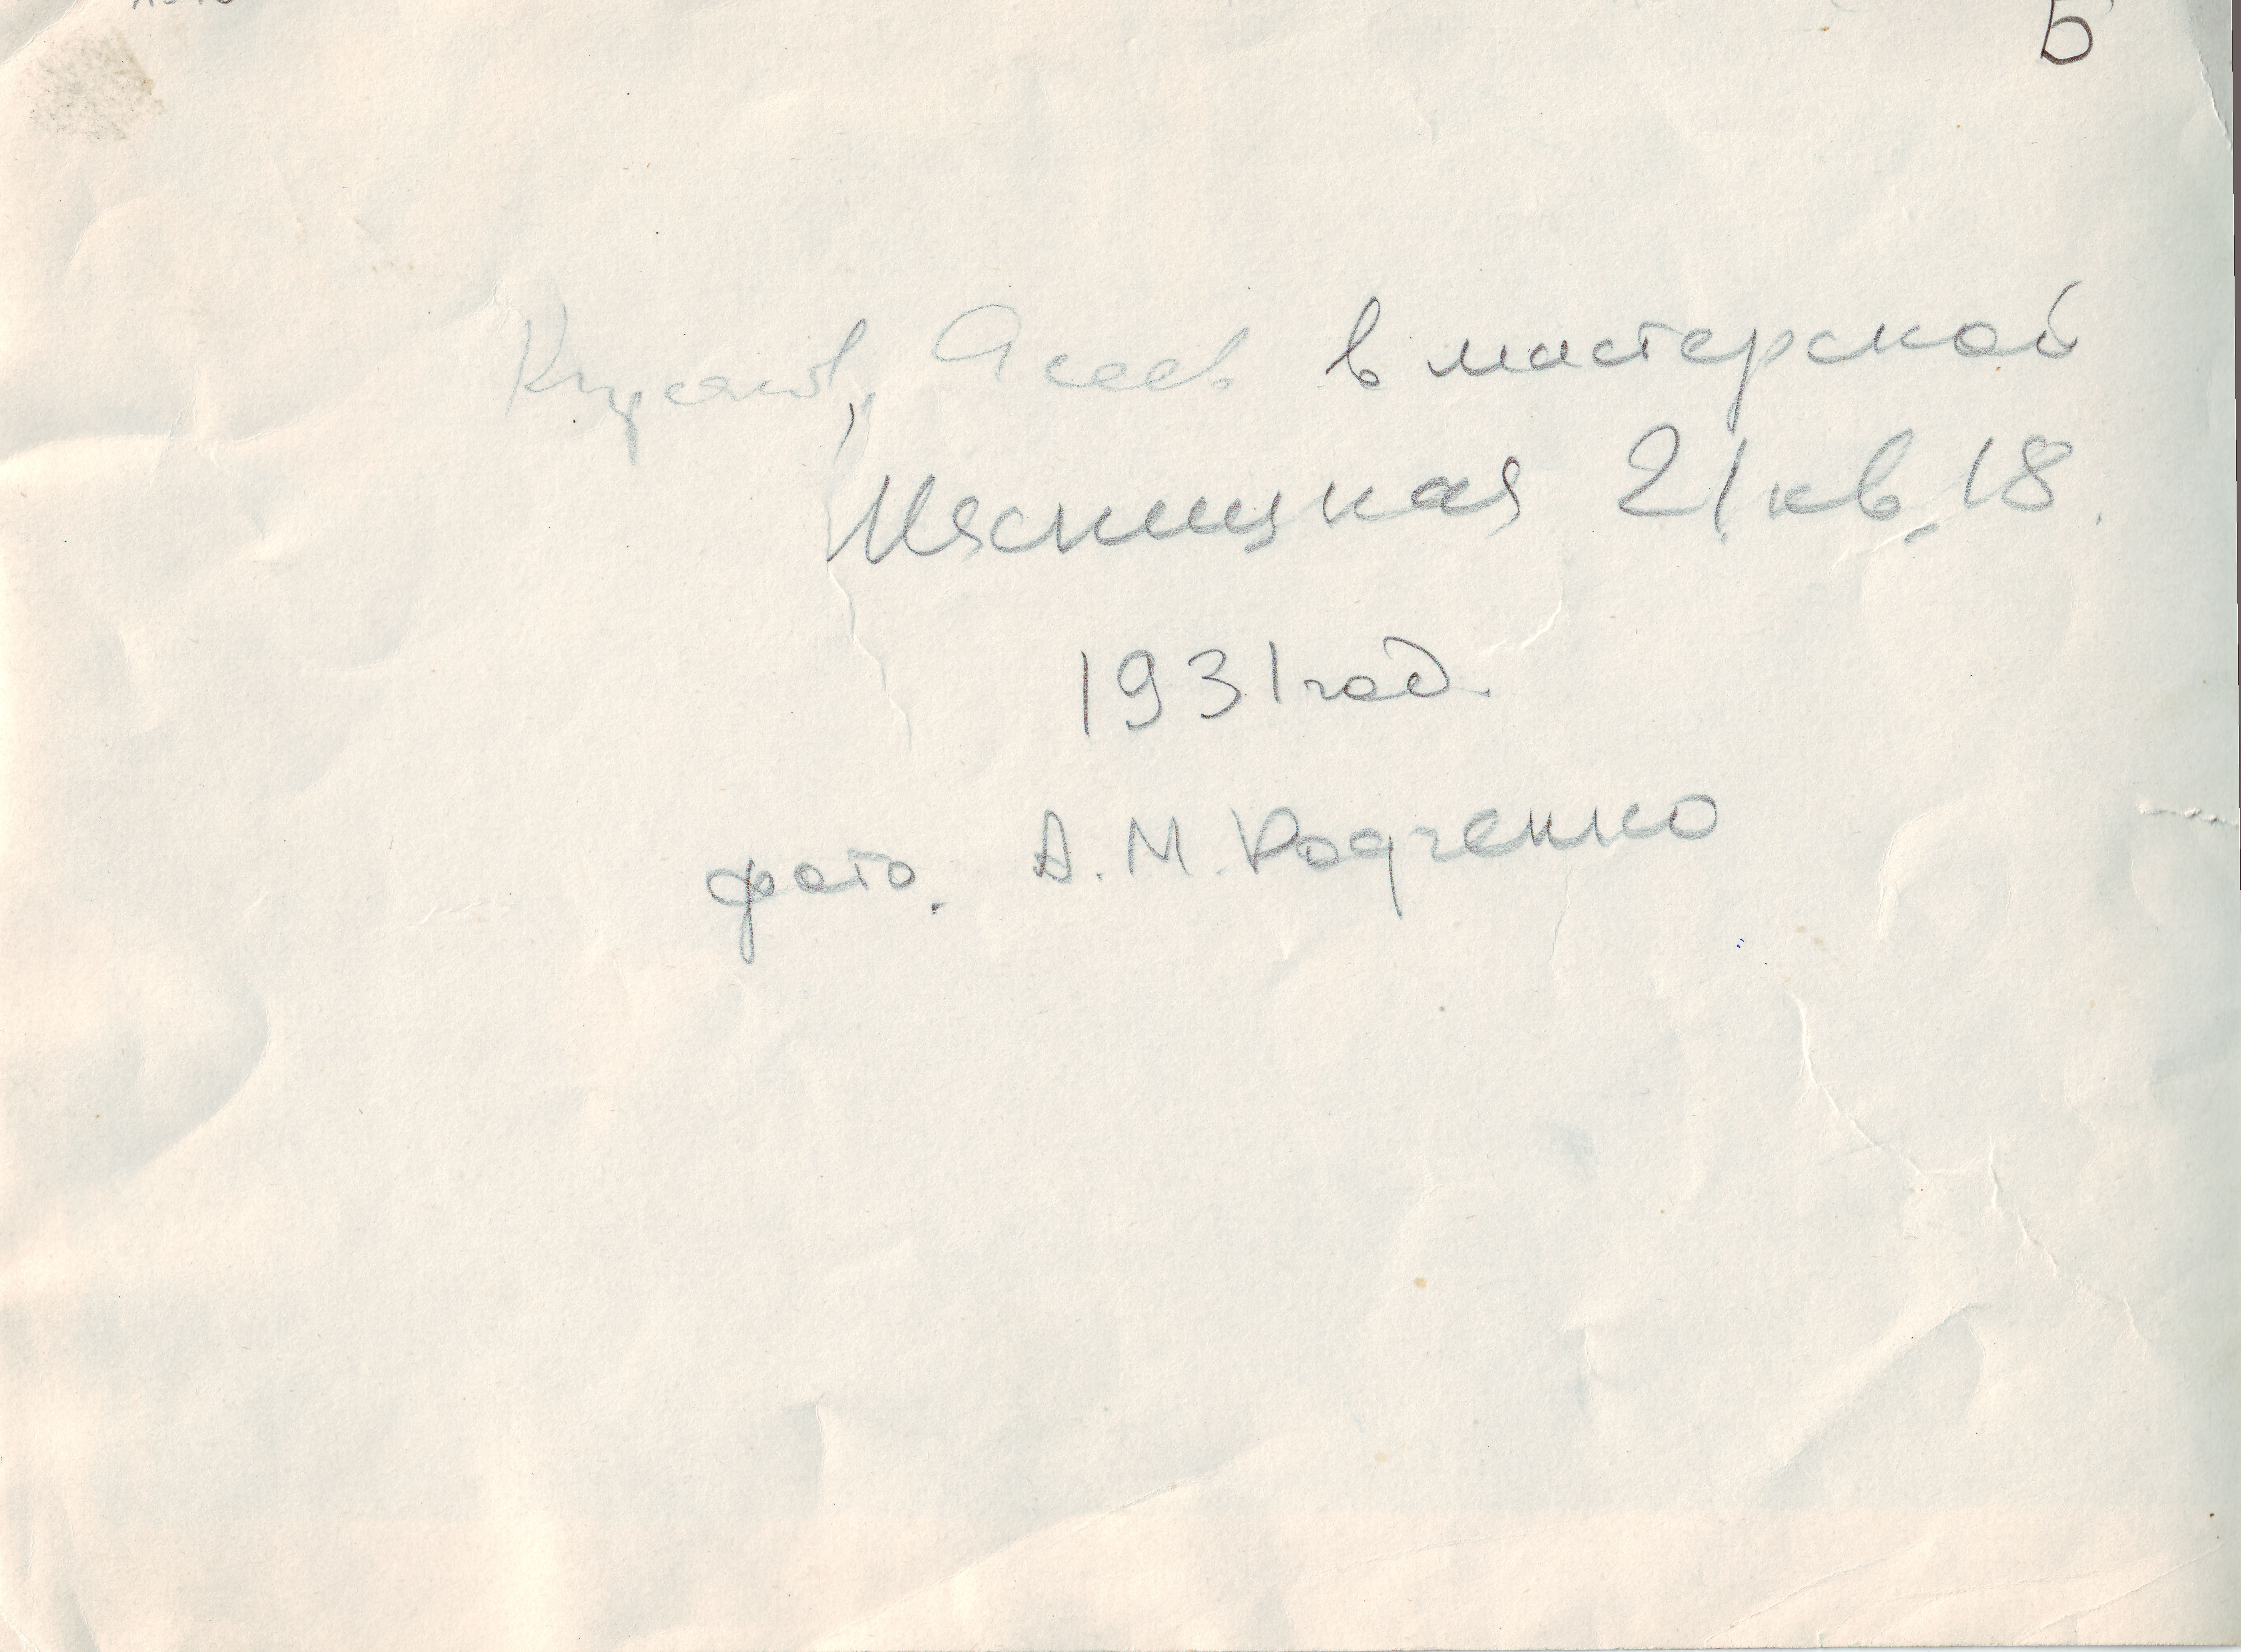 Б
Асеев в мастерской
Мясницкая 21 кв. 18.
1931 год.
фото. А. М. Родченко